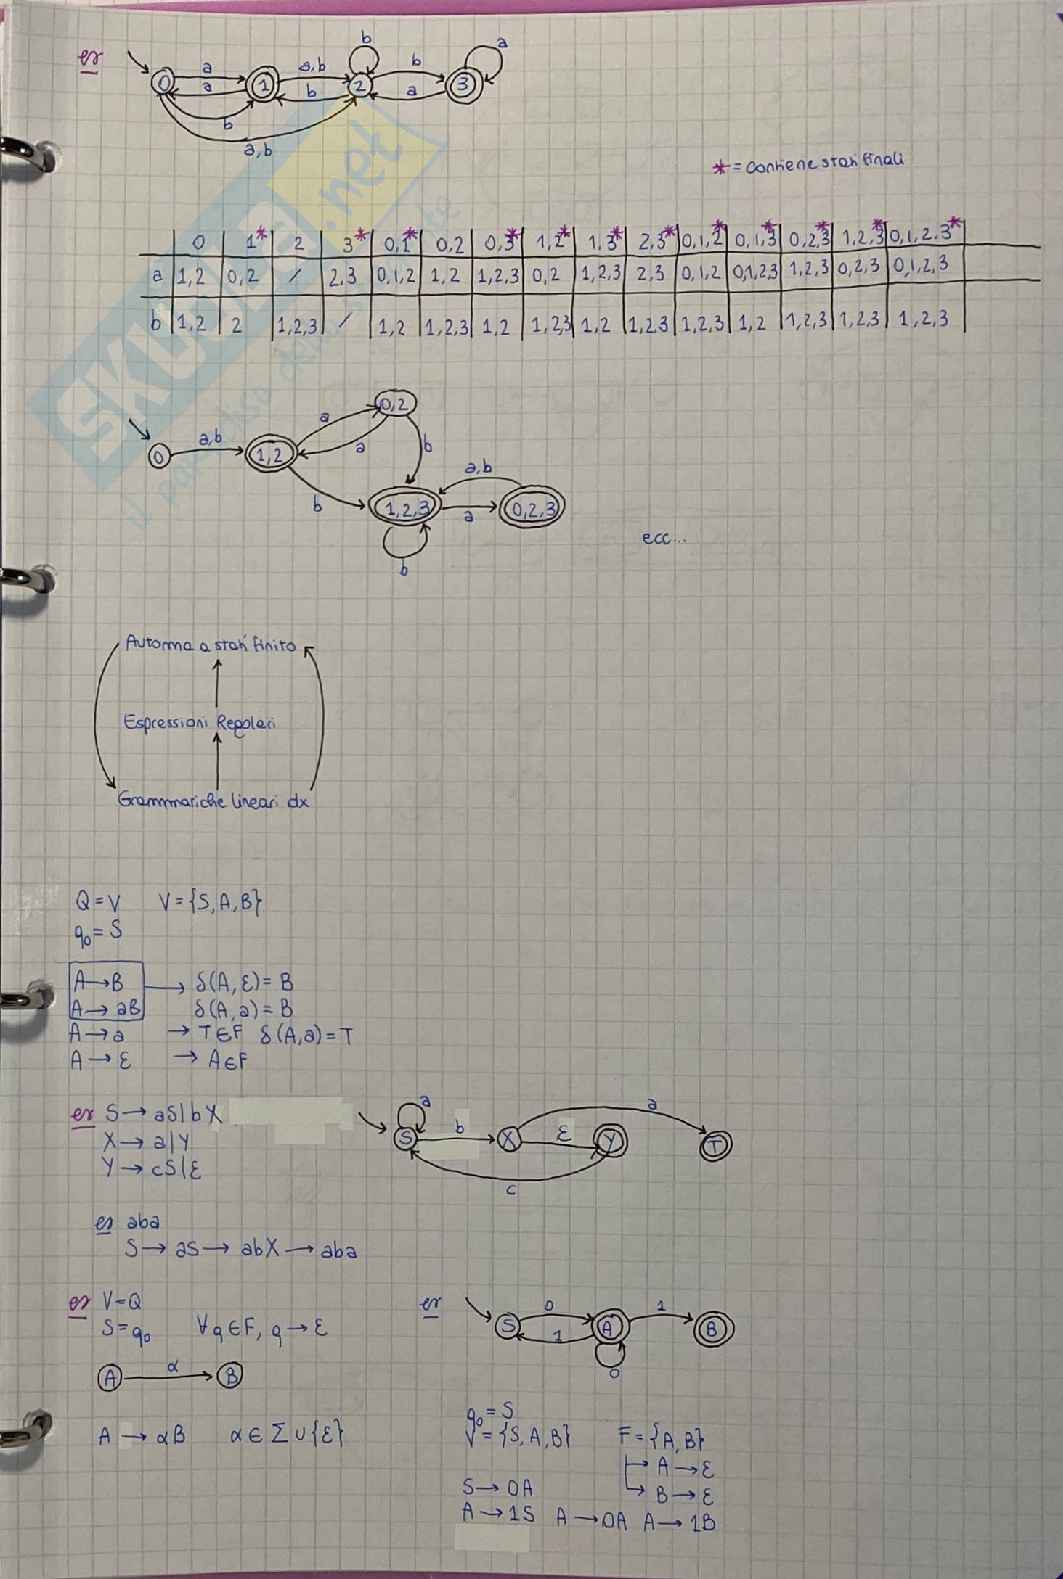 es
b a
0 a 1 a,b 2 b 3
a b a
b
a,b
* = contiene stati finali
0 1* 2 3* 0,1* 0,2 0,3* 1,2* 1,3* 2,3* 0,1,2* 0,1,3* 0,2,3* 1,2,3* 0,1,2,3*
a 1,2 0,2 / 2,3 0,1,2 1,2 1,2,3 0,2 1,2,3 2,3 0,1,2 0,1,2,3 1,2,3 0,2,3 0,1,2,3
b 1,2 2 1,2,3 / 1,2 1,2,3 1,2 1,2,3 1,2 1,2,3 1,2,3 1,2 1,2,3 1,2,3 1,2,3
0,2
a
0 a,b 1,2 a b
a,b
b 1,2,3 a 0,2,3
ecc...
b
Automa a stati finito
Espressioni Regolari
Grammatiche lineari dx
Q = V V = {S, A, B}
q₀ = S
A → B → δ(A, ε) = B
A → aB δ(A, a) = B
A → a → T ∈ F δ(A, a) = T
A → ε → A ∈ F
es S → aS | bX
X → a | Y
Y → cS | ε
a a
S b X ε Y T
c
es aba
S → aS → abX → aba
es V = Q
S = q₀ ∀q ∈ F, q → ε
A α B
A → αB α ∈ Σ ∪ {ε}
es
S 0 A 1 B
1
0
q₀ = S
V = {S, A, B} F = {A, B}
A → ε
B → ε
S → 0A
A → 1S A → 0A A → 1B
SKUOLA.net